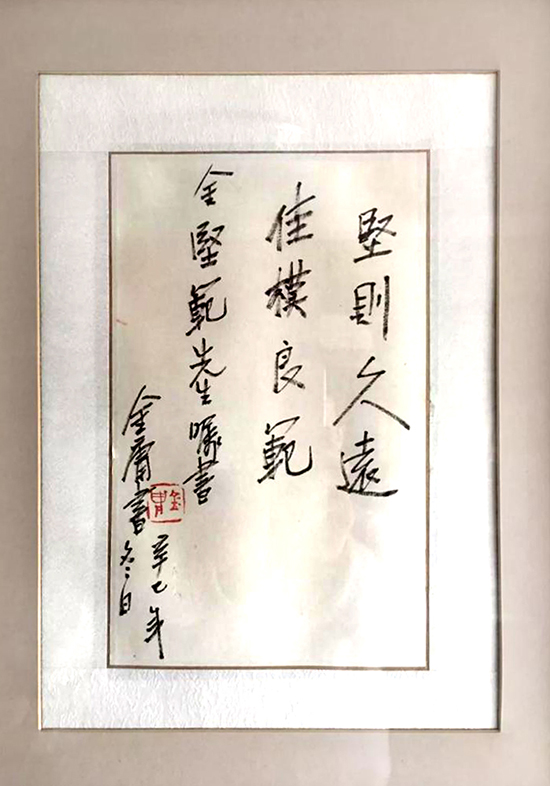 堅則久遠
佳模良範
金堅範先生囑書
金庸書
辛巳年
冬日
金庸